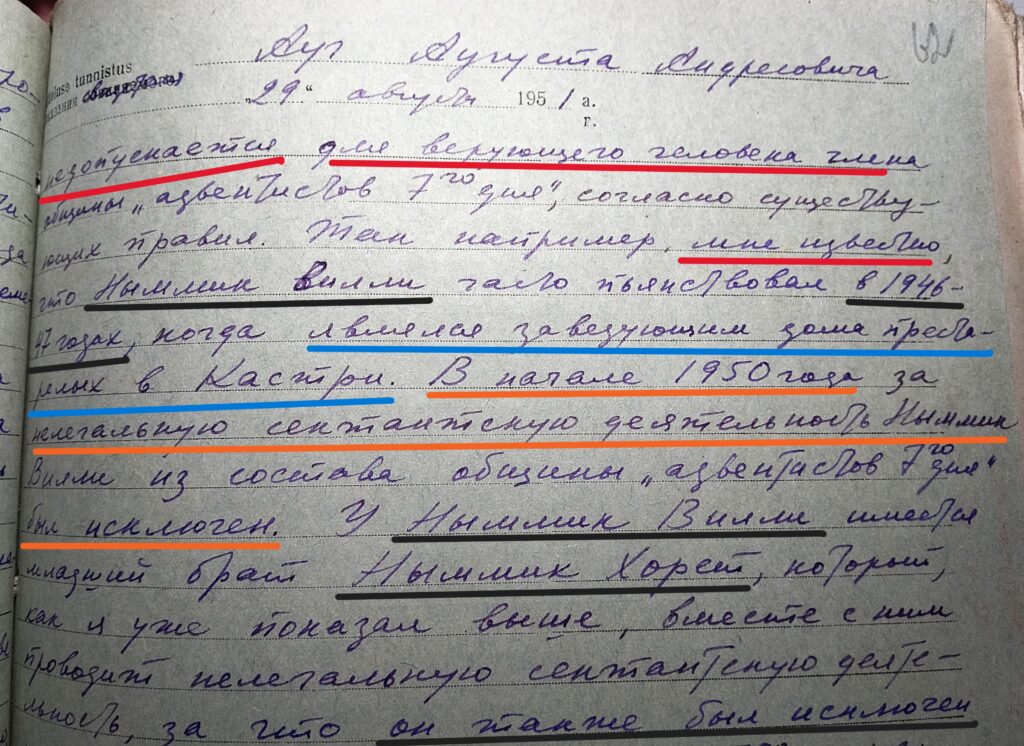 Ауг Августа Андресовича
tunnistus
29 " августа 195 1 a.
г.
недопускается для верующего человека члена
общины „адвентистов 7го дня", согласно существу-
ющих правил. Так например, мне известно,
что Ныммик Вилли часто пьянствовал в 1946-
47 годах, когда являлся заведующим дома преста-
релых в Кастри. В начале 1950 года за
нелегальную сектантскую деятельность Ныммик
Вилли из состава общины „адвентистов 7го дня"
был исключен. У Ныммик Вилли имеется
младший брат Ныммик Хорст, который,
как я уже показал выше, вместе с ним
проводит нелегальную сектантскую деяте-
льность, за что он также был исключен